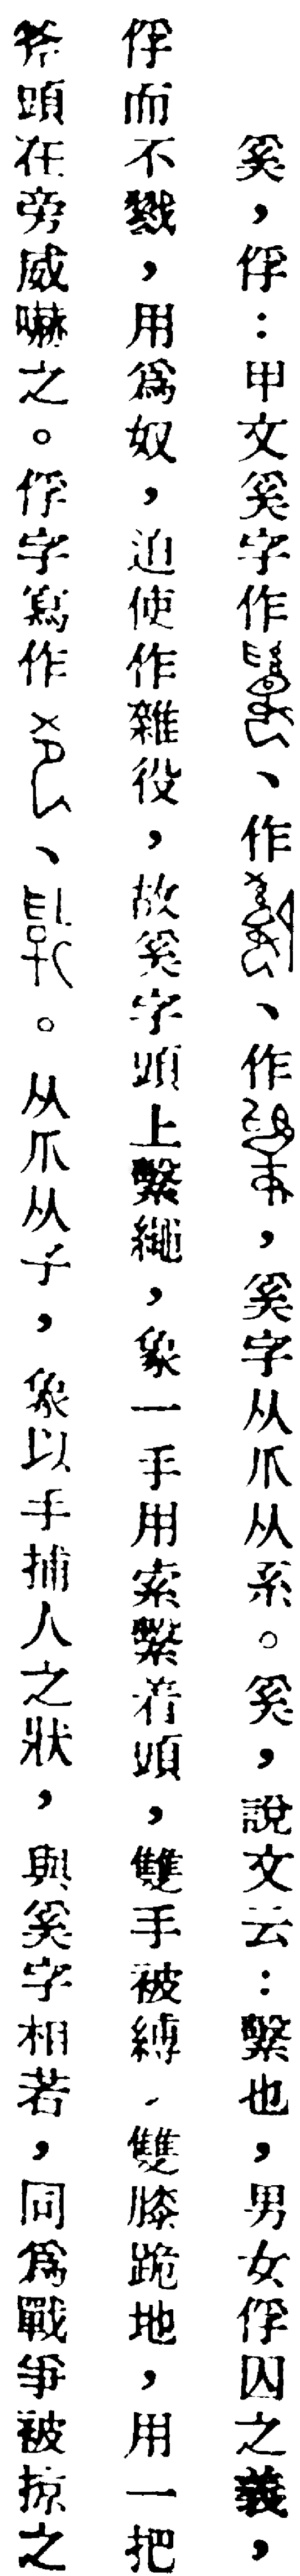 奚，俘：甲文奚字作、作、作，奚字从爪从系。奚，說文云：繫也，男女俘囚之義，
俘而不戮，用爲奴，迫使作雜役，故奚字頭上繫繩，象一手用索繫着頭，雙手被縛，雙膝跪地，用一把
斧頭在旁威嚇之。俘字寫作、。从爪从子，象以手捕人之狀，與奚字相若，同爲戰爭被掠之